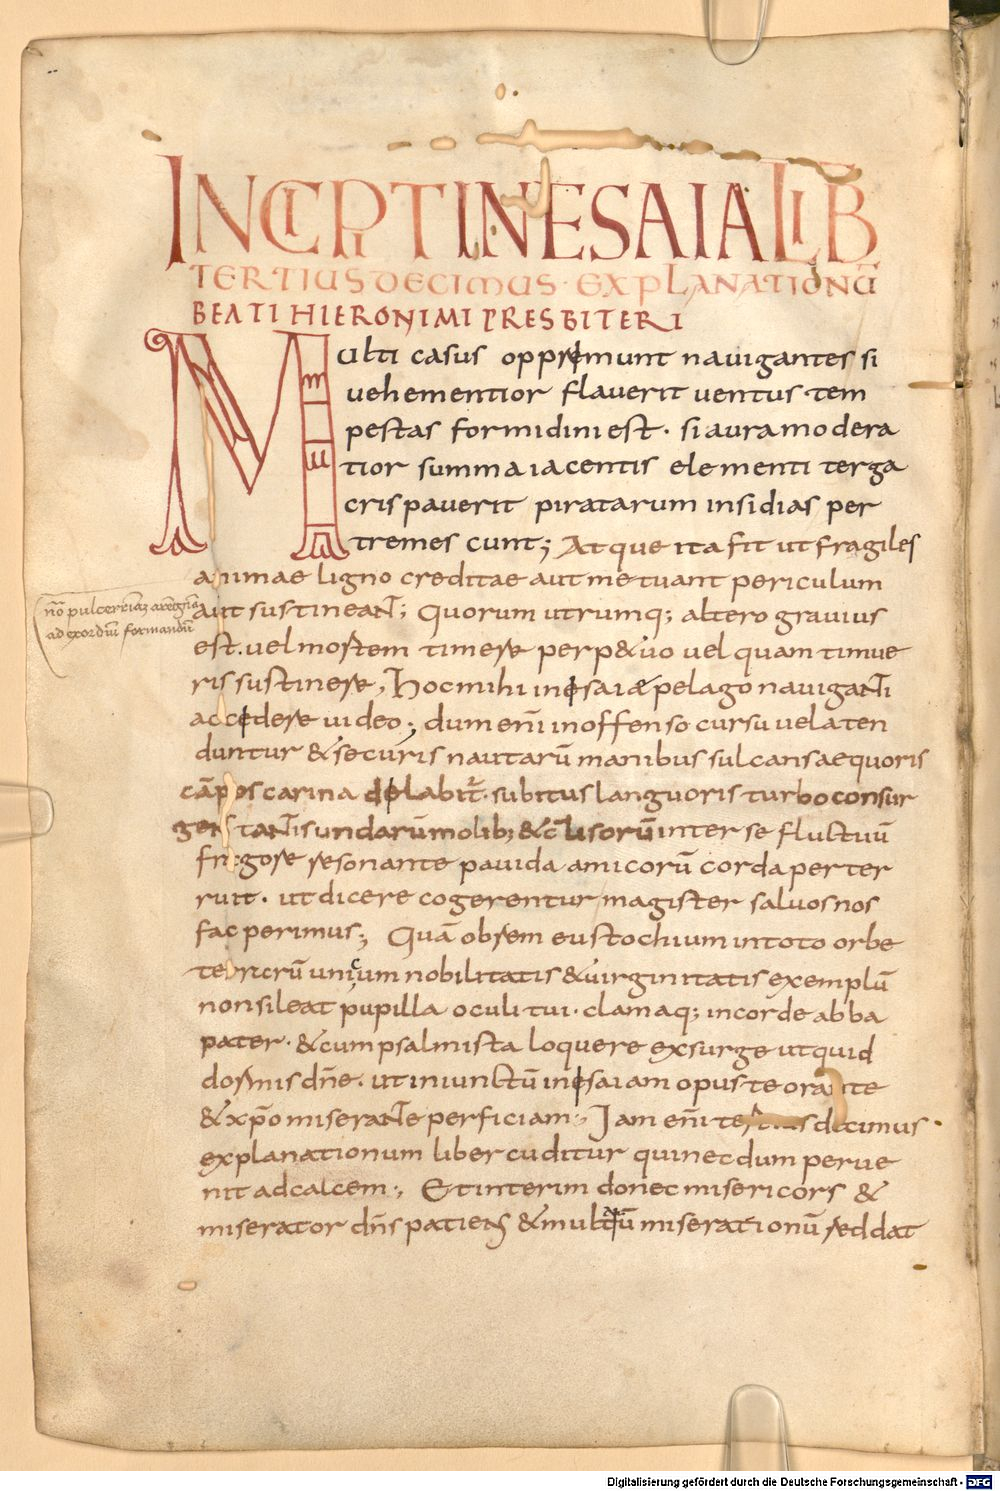 INCIPIT IN ESAIA LIB
TERTIUS DECIMUS EXPLANATIONŪ
BEATI HIERONIMI PRESBITERI
Multi casus oppremunt nauigantes si
uehementior flauerit uentus tem
pestas formidini est. si aura modera
tior summa iacentis elementi terga
crispauerit piratarum insidias per
tremescunt; Atque ita fit ut fragiles
animae ligno creditae aut metuant periculum
aut sustineant; Quorum utrumq; altero grauius
est. uel mortem timere perp&uo uel quam timue
ris sustinere, Hoc mihi in esaiae pelago nauiganti
accedere uideo; dum eni̅ inoffenso cursu uela ten
duntur & securis nautarū manibus sulcans aequoris
cāpos carina delabit̅. subitus languoris turbo consur
gens tantis undarū molib; & collisorū inter se fluctuū
fragore resonante pauida amicorū corda perter
ruit. ut dicere cogerentur magister saluos nos
fac perimus; Quā obrem eustochium in toto orbe
terrarū unicum nobilitatis & uirginitatis exemplū
non sileat pupilla oculi tui. clamaq; in corde abba
pater. & cum psalmista loquere exsurge ut quid
dormis dn̅e. ut iniunctū in esaiam opus te orante
& xp̅o miserante perficiam; Iam eni̅ tertius decimus
explanationum liber cuditur qui necdum perue
nit ad calcem; Et interim donec misericors &
miserator dn̅s patiens & multarū miserationū sed dat
ad exordiū formandū